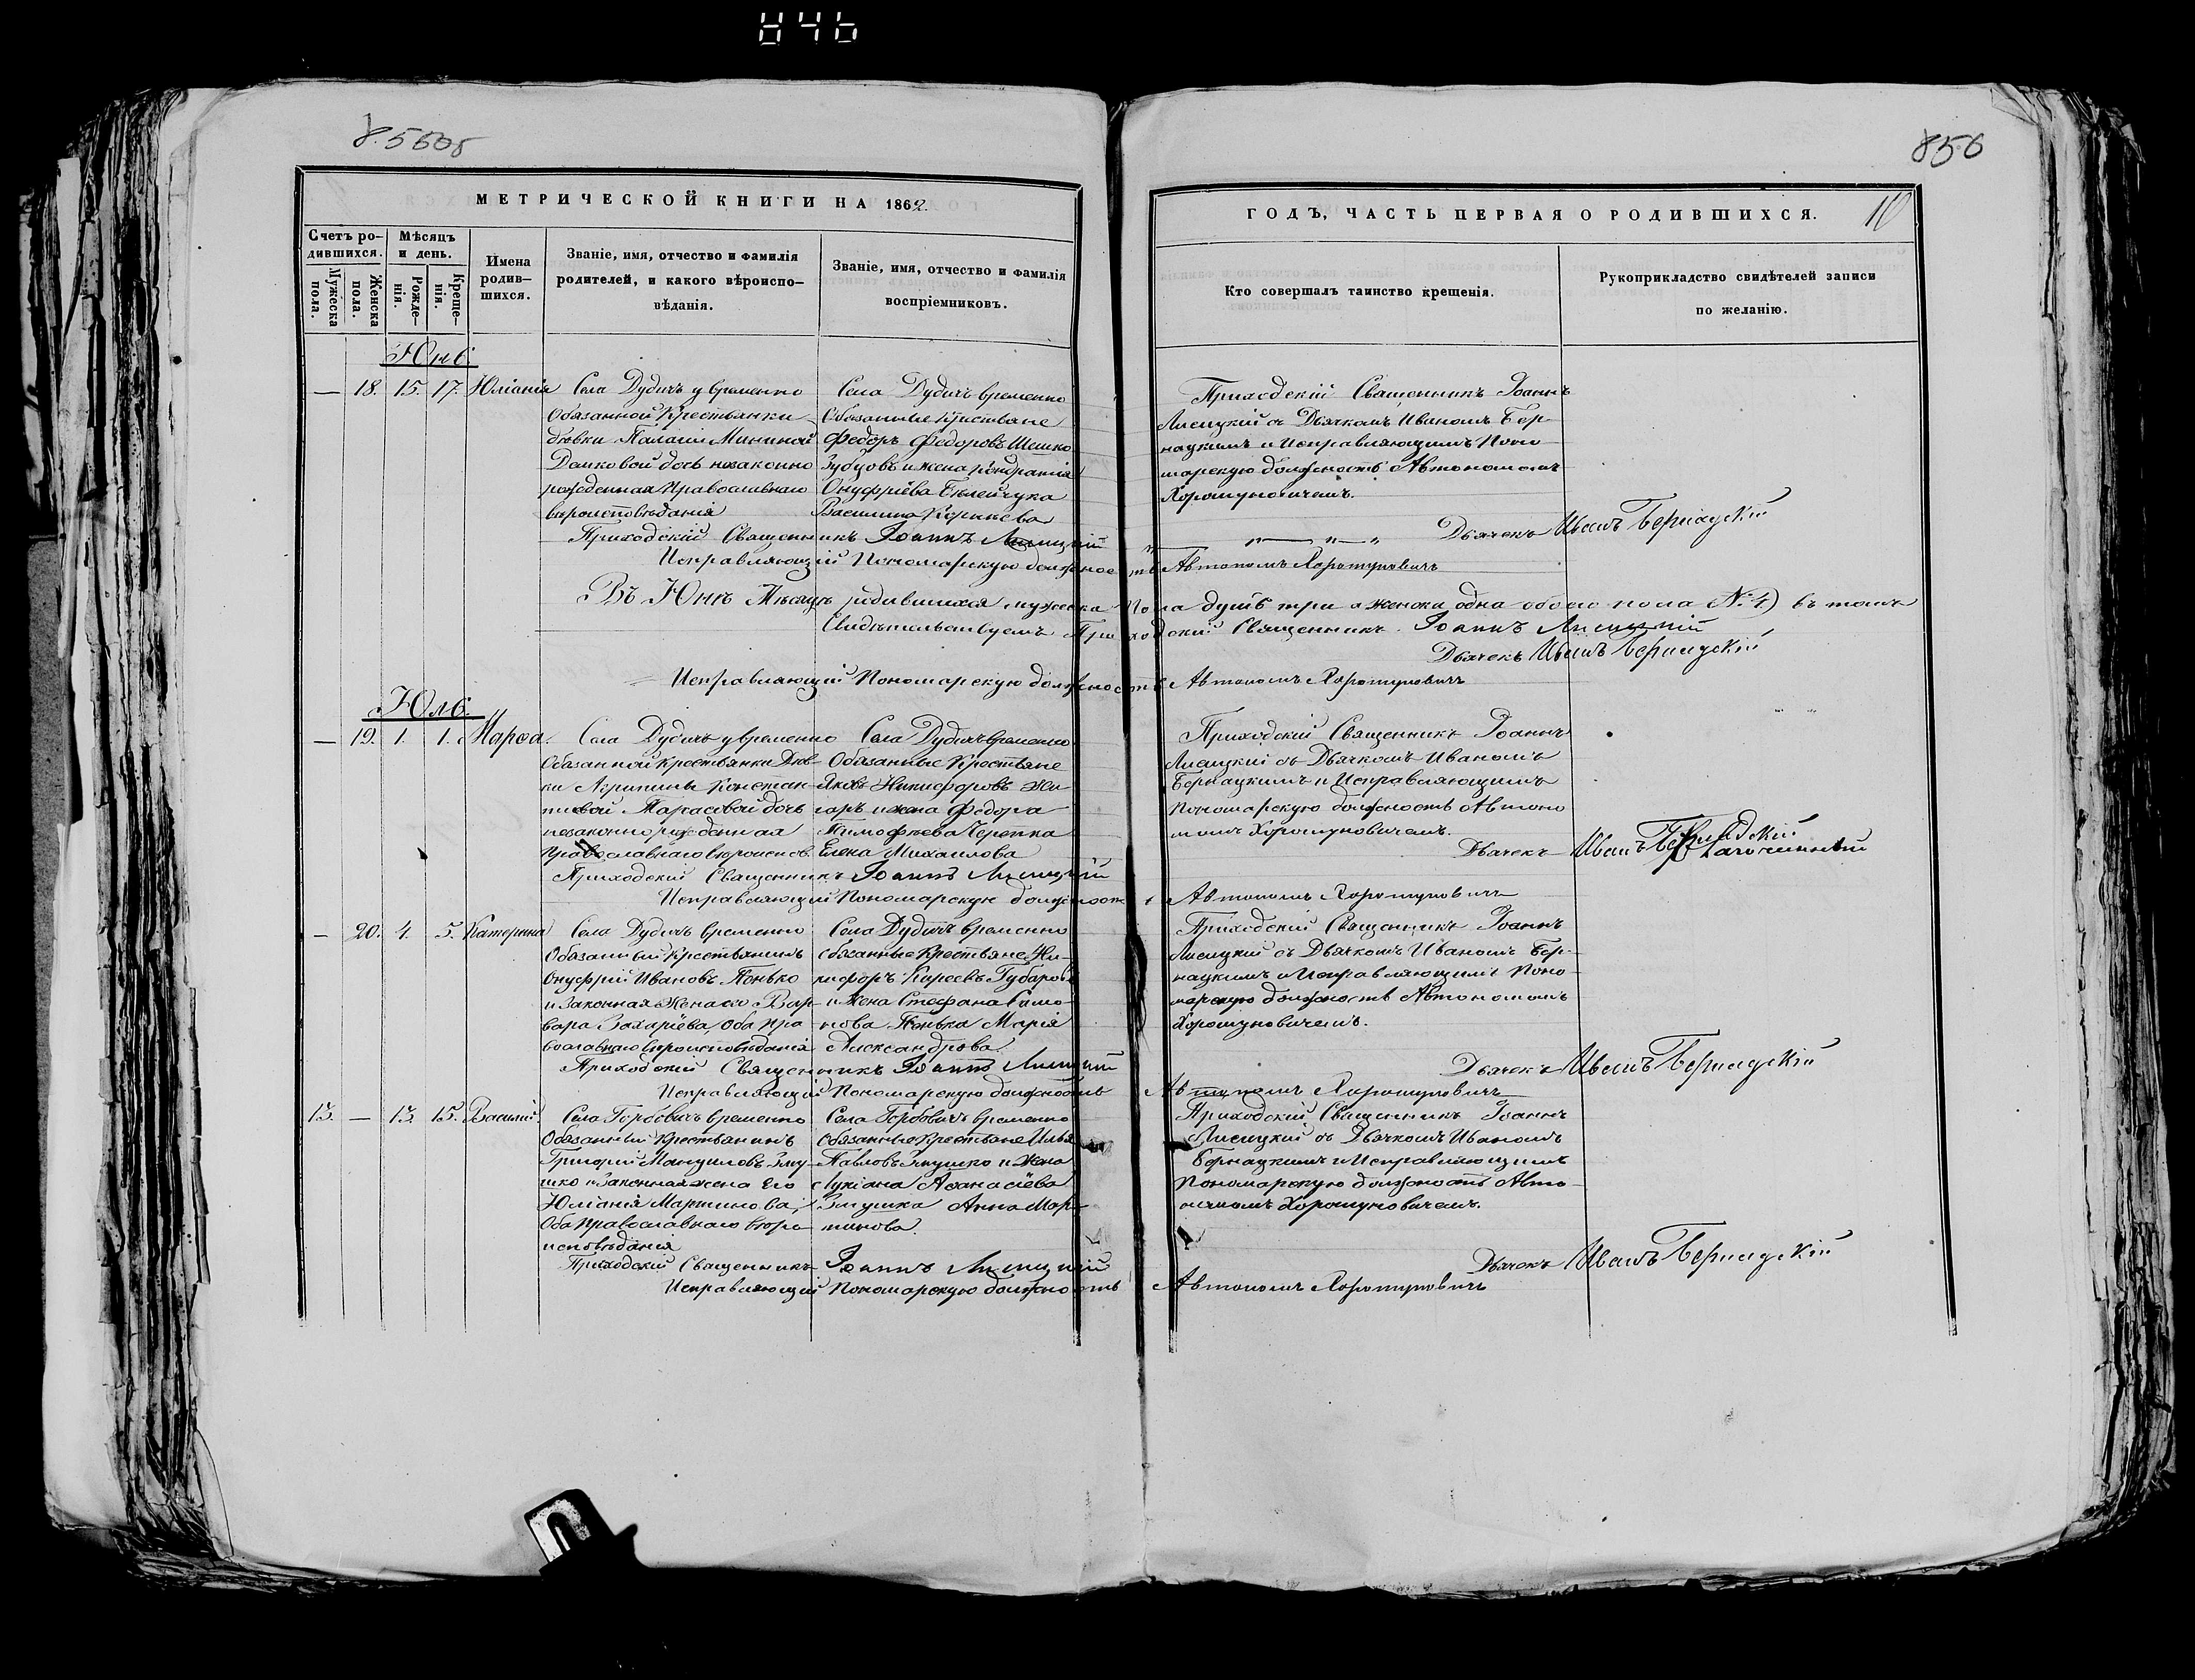 846
855об
856
МЕТРИЧЕСКОЙ КНИГИ НА 1862.
ГОДЪ, ЧАСТЬ ПЕРВАЯ О РОДИВШИХСЯ.
10
Счетъ ро-
дившихся.
Мужеска пола.
Женска пола.
Мѣсяцъ
и день.
Рожде-
нія.
Креще-
нія.
Имена
родив-
шихся.
Званіе, имя, отчество и фамилія
родителей, и какого вѣроиспо-
вѣданія.
Званіе, имя, отчество и фамилія
воспріемниковъ.
Кто совершалъ таинство крещенія.
Рукоприкладство свидѣтелей записи
по желанію.
Юнь
— 18. 15. 17. Юліанія
Села Дудичъ у временно
Обязанной Крестьянки
дѣвки Палагіи Мининой
Домковой дочь незаконно
рожденная Православнаго
вѣроисповѣданія
Села Дудичъ временно
Обязанные Крестьяне
Федоръ Федоровъ
Зубовъ и жена Кондратія
Онуфріева
Василина Корнѣева
Приходскій Священникъ Іоаннъ
Лисицкій съ Дьячкомъ Иваномъ Бер-
нацкимъ и Исправляющимъ Поно
марскую должность Автономомъ
Хорошуновичемъ.
Приходскій Священникъ Іоаннъ Лисицкій
Дьячекъ Иванъ Бернадскій
Исправляющій Пономарскую должность Автономъ Хорошуновичъ
Въ Юнѣ Мѣсяцѣ родившихся мужеска Пола душъ три а женска одна обоего пола (№ 4) въ томъ
Свидѣтельствуемъ Приходскій Священникъ Іоаннъ Лисицкій
Дьячекъ Иванъ Бернадскій
Исправляющій Пономарскую должность Автономъ Хорошуновичъ
Юль.
— 19. 1. 1. Марѳа.
Села Дудичъ у временно
Обязанной Крестьянки Дѣв-
ки Агрипины Констан-
тиновой Тарасовой дочь
незаконно рожденная
Православнаго вѣроиспов.
Села Дудичъ временно
Обязанные Крестьяне
Яковъ Никифоровъ
и жена Федора
Тимофѣева
Елена Михаилова
Приходскій Священникъ Іоаннъ
Лисицкій съ Дьячкомъ Иваномъ
Бернацкимъ и Исправляющимъ
Пономарскую должность Автоно
момъ Хорошуновичемъ.
Приходскій Священникъ Іоаннъ Лисицкій
Дьячекъ Иванъ Бернадскій
Исправляющій Пономарскую должность Автономъ Хорошуновичъ
— 20. 4. 5. Катерина
Села Дудичъ временно
Обязанный Крестьянинъ
Онуфрій Ивановъ Пенько
и Законная Жена его Вар-
вара Захаріева, Оба Пра-
вославнаго вѣроисповѣданія
Села Дудичъ временно
обязанные Крестьяне Ни-
кифоръ Карповъ
и Жена Стефана Симо-
нова Пенька Марія
Александрова.
Приходскій Священникъ Іоаннъ
Лисицкій съ Дьячкомъ Иваномъ Бер-
нацкимъ и Исправляющимъ Поно-
марскую должность Автономомъ
Хорошуновичемъ.
Приходскій Священникъ Іоаннъ Лисицкій
Дьячекъ Иванъ Бернадскій
Исправляющій Пономарскую должность Автономъ Хорошуновичъ
13. — 13. 15. Василій.
Села Горбовичъ временно
Обязанный Крестьянинъ
Григорій Мануиловъ Зму-
шко и Законная жена Его
Юліанія Мартинова,
Оба Православнаго вѣро-
исповѣданія
Села Горбовичъ временно
Обязанные Крестьяне Илья
Павловъ Змушко и Жена
Лукіана Аѳанасіева
Змушка Анна Мар-
тинова.
Приходскій Священникъ Іоаннъ
Лисицкій съ Дьячкомъ Иваномъ
Бернацкимъ и Исправляющимъ
Пономарскую должность Авто-
номомъ Хорошуновичемъ.
Приходскій Священникъ Іоаннъ Лисицкій
Дьячекъ Иванъ Бернадскій
Исправляющій Пономарскую должность Автономъ Хорошуновичъ